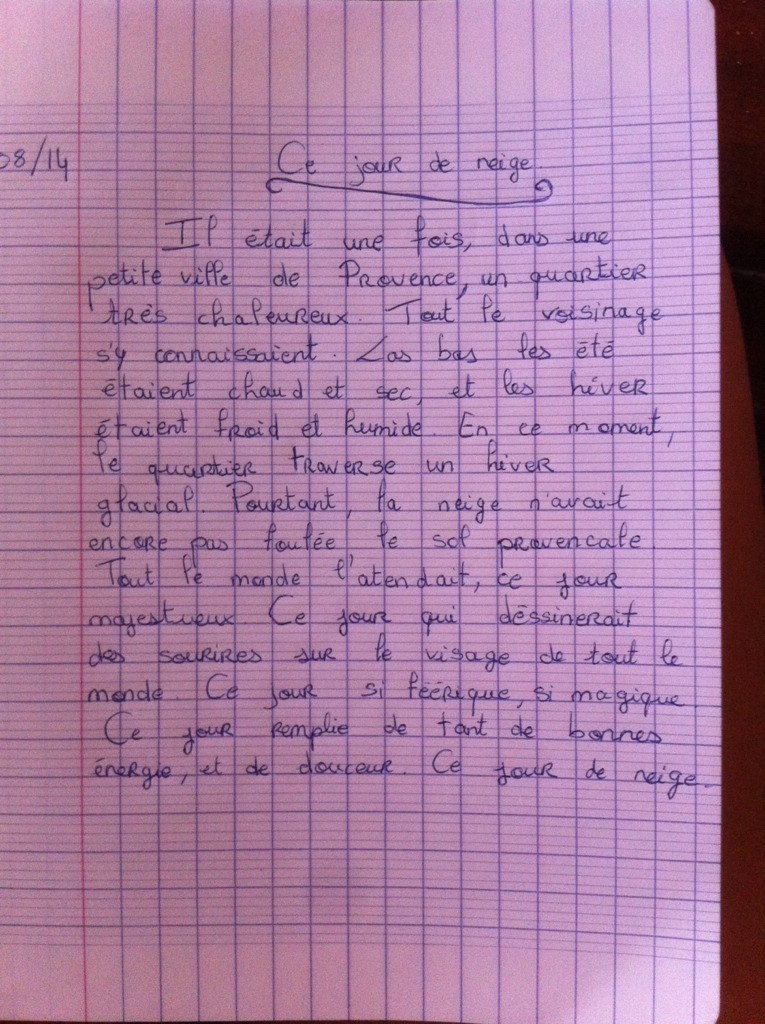 08/14
Ce jour de neige.
Il était une fois, dans une
petite ville de Provence, un quartier
très chaleureux. Tout le voisinage
s'y connaissaient. Las bas les été
étaient chaud et sec, et les hiver
étaient froid et humide. En ce moment,
le quartier traverse un hiver
glacial. Pourtant, la neige n'avait
encore pas foulée le sol provencale.
Tout le monde l'atendait, ce jour
majestueux. Ce jour qui déssinerait
des sourires sur le visage de tout le
monde. Ce jour si féérique, si magique.
Ce jour remplie de tant de bonnes
énergie, et de douceur. Ce jour de neige.